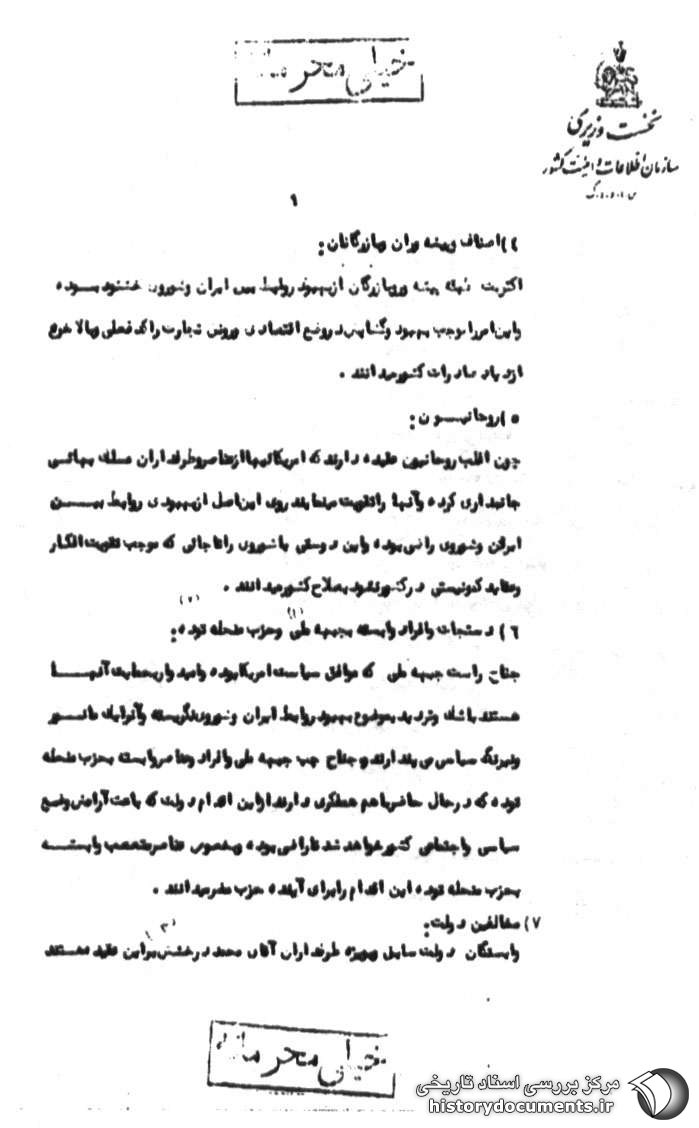 خیلی محرمانه
نخست وزیری
سازمان اطلاعات و امنیت کشور
س.ا.و.ا.ک
۱
۴) اصناف و پیشه وران و بازرگانان:
اکثریت طبقه پیشه ور و بازرگان از بهبود روابط بین ایران و شوروی خشنود بوده
و این امر را موجب بهبود و گشایش در وضع اقتصادی و رونق تجارت راکد فعلی و بالاخره
ازدیاد صادرات کشور میدانند .
۵) روحانیون:
چون اغلب روحانیون عقیده دارند که امریکائیها از عناصر و طرفداران مسلک بهائی
جانبداری کرده و آنها را تقویت مینمایند روی این اصل از بهبودی روابط بین
ایران و شوروی راضی بوده و این دوستی با شوروی را تا جائی که موجب تقویت افکار
و عقاید کمونیستی در کشور نشود بصلاح کشور میدانند .
۶) دستجات و افراد وابسته بجبهه ملی (۱) و حزب منحله توده (۲):
جناح راست جبهه ملی که موافق سیاست امریکا بوده و امیدوار بحمایت آنها
هستند با شک و تردید بموضوع بهبود روابط ایران و شوروی نگریسته و آنرا یک مانور
و نیرنگ سیاسی می پندارند و جناح چپ جبهه ملی و افراد و عناصر وابسته بحزب منحله
توده که در حال حاضر با هم همفکری دارند از این اقدام دولت که باعث آرامش وضع
سیاسی و اجتماعی کشور خواهد شد ناراضی بوده و بخصوص عناصر متعصب وابسته
بحزب منحله توده این اقدام را برای آینده حزب مضر میدانند .
۷) مخالفین دولت:
وابستگان دولت سابق بویژه طرفداران آقای محمد درخشش (۳) براین عقیده هستند
خیلی محرمانه
مرکز بررسی اسناد تاریخی
historydocuments.ir